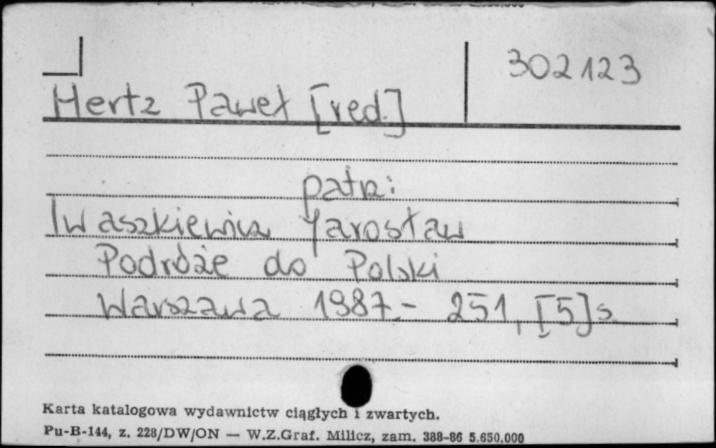 302123
Hertz Paweł [red.]
patrz:
Iwaszkiewicz Jarosław
Podróże do Polski
Warszawa 1987.- 251, [5] s.
Karta katalogowa wydawnictw ciągłych i zwartych.
Pu-B-144, z. 228/DW/ON — W.Z.Graf. Milicz, zam. 388-86 5.650.000